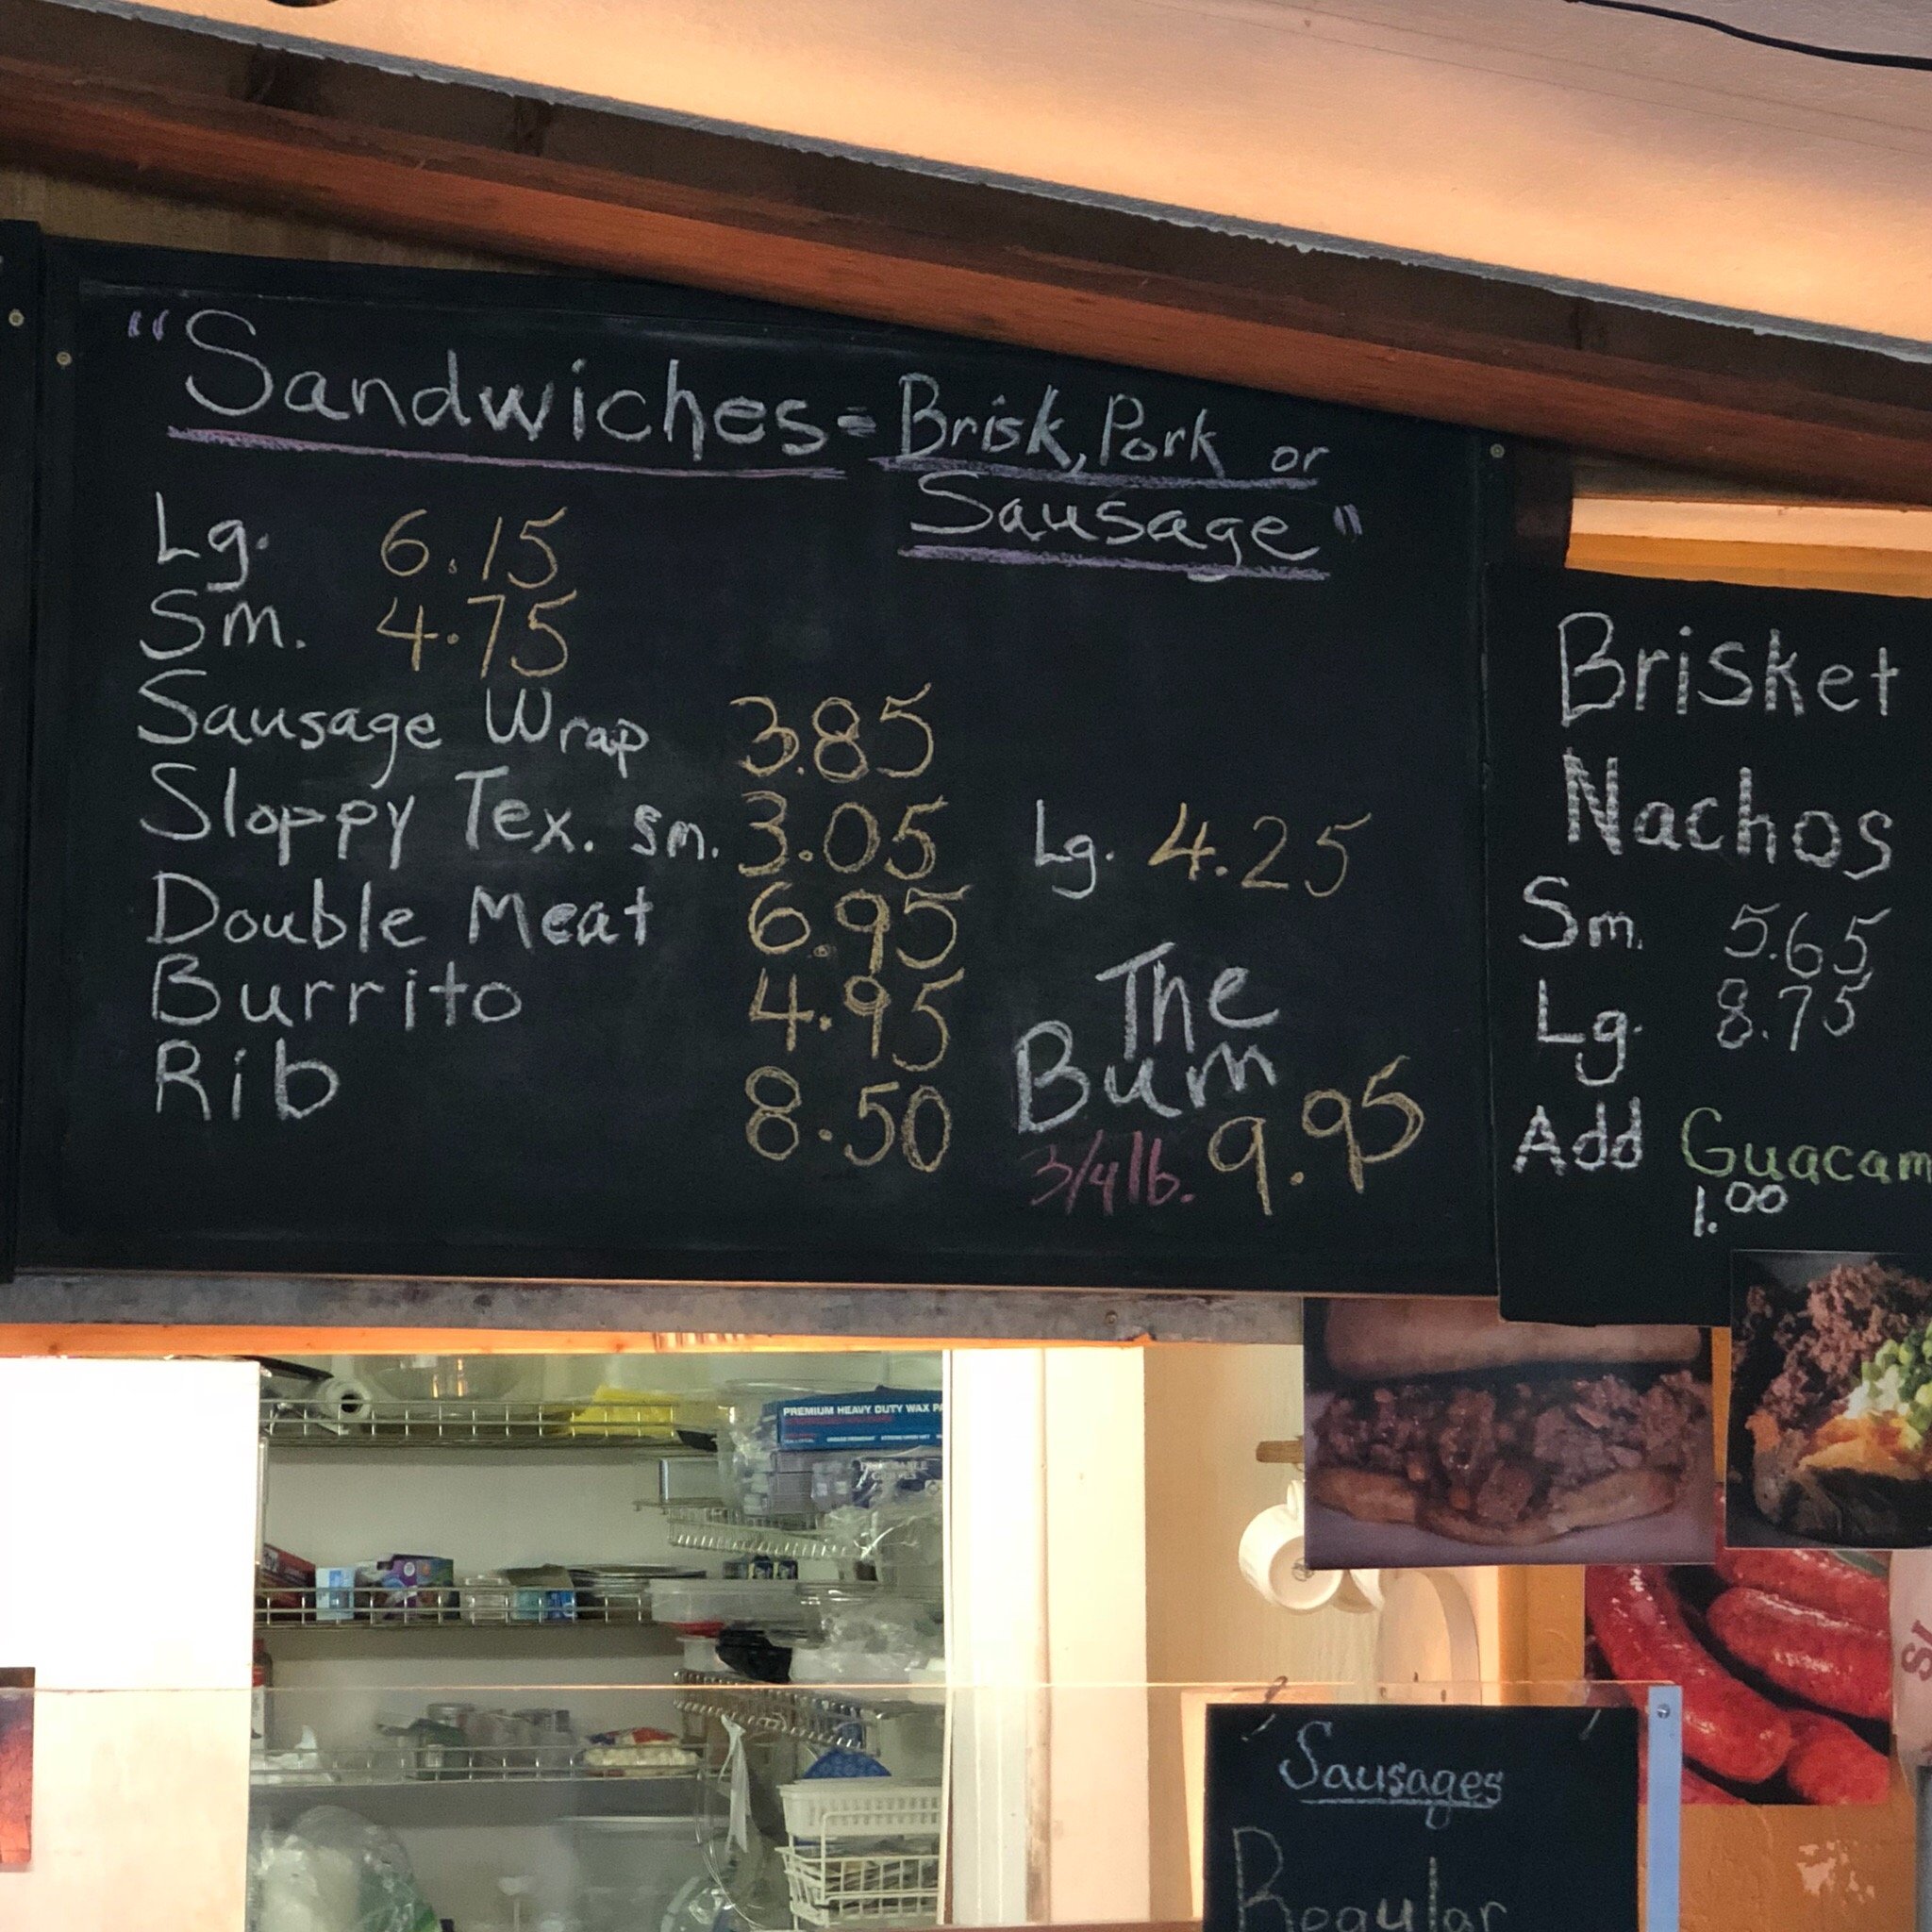 "Sandwiches = Brisk, Pork or
Sausage"
Lg. 6.15
Sm. 4.75
Sausage Wrap 3.85
Sloppy Tex. Sm. 3.05 Lg. 4.25
Double Meat 6.95
Burrito 4.95
Rib 8.50
The
Bum
3/4 lb. 9.95
Brisket
Nachos
Sm. 5.65
Lg. 8.75
Add Guacam
1.00
PREMIUM HEAVY DUTY WAX PA
Sausages
Regular